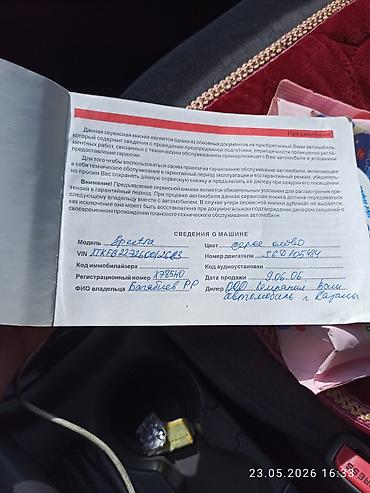 Предисловие
Данная сервисная книжка является одним из основных документов на приобретенный Вами автомобиль,
который содержит сведения о проведении предпродажной подготовки, периодичности проведения регла-
ментных работ, связанных с техническим обслуживанием принадлежащего Вам автомобиля и условиям
предоставления гарантии.
Для того чтобы воспользоваться своим правом на гарантийное обслуживание автомобиля, включающего
в себя техническое обслуживание в гарантийный период эксплуатации и его гарантийный ремонт, убедитель-
но просим Вас сохранять данную сервисную книжку и предъявлять её дилеру при каждом его посещении.
Внимание! Предъявление сервисной книжки является обязательным условием для рассмотрения пре-
тензий в гарантийный период. При продаже автомобиля данная сервисная книжка должна передаваться
следующему владельцу вместе с автомобилем. В случае утери дубликат не выдается,
как исключение она может быть восстановлена при документальном подтверждении дилером сведений о
своевременном прохождении планового технического обслуживания автомобиля.
СВЕДЕНИЯ О МАШИНЕ
Модель Spectra Цвет серое олово
VIN Номер двигателя
Код иммобилайзера Код аудиоустановки
Регистрационный номер Дата продажи 9.06.06
ФИО владельца Дилер ООО Компания Воли
автомобиль г Казань
23.05.2026 16:33